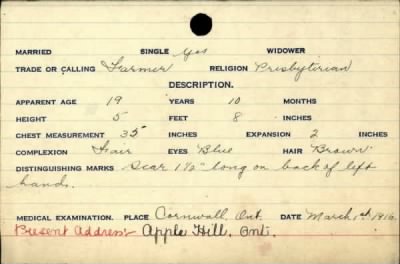 MARRIED SINGLE Yes WIDOWER
TRADE OR CALLING Farmer RELIGION Presbyterian
DESCRIPTION.
APPARENT AGE 19 YEARS 10 MONTHS
HEIGHT 5 FEET 8 INCHES
CHEST MEASUREMENT 35 INCHES EXPANSION 2 INCHES
COMPLEXION Fair EYES Blue HAIR Brown
DISTINGUISHING MARKS Scar 1½" long on back of left
hand.
MEDICAL EXAMINATION. PLACE Cornwall, Ont. DATE March 1st 1916.
Present Address Apple Hill, Ont.